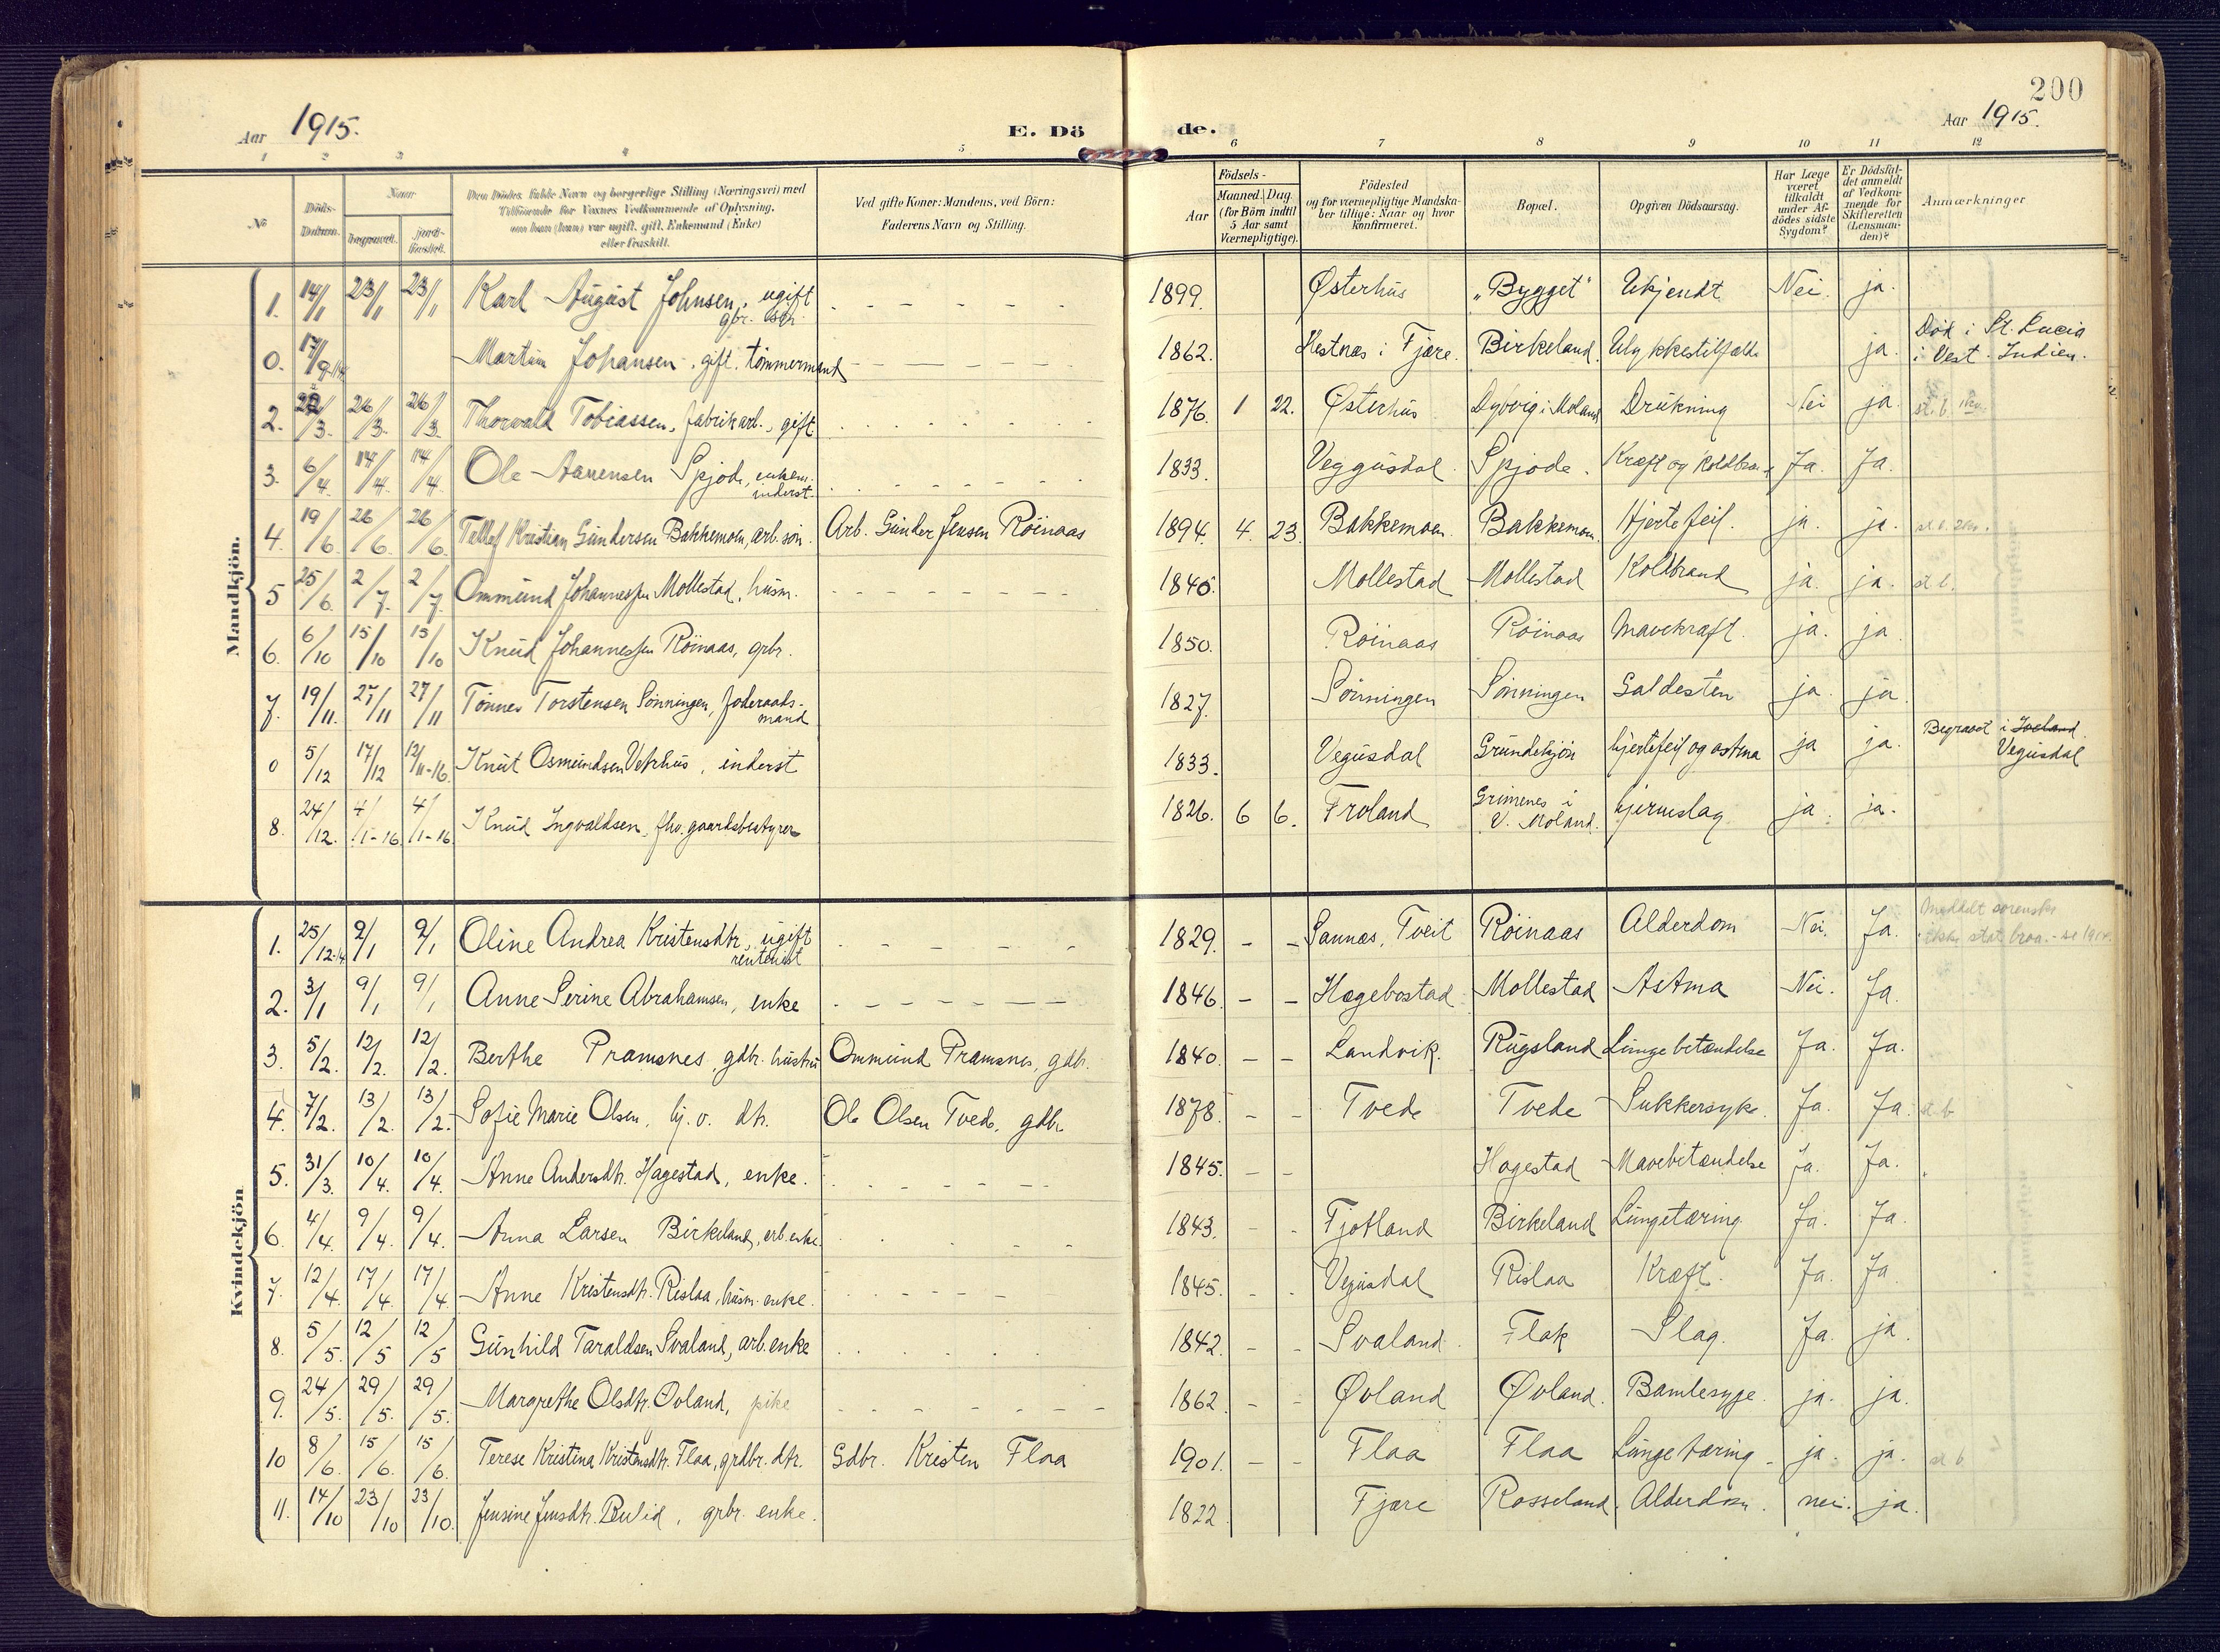 200
Aar 1915.
E. Dö de.
Aar 1915.
1 2 3 4 5 6 7 8 9 10 11 12
No
Döds-
Datum.
Naar
begravet.
jord-
fæstet.
Den Dödes fulde Navn og borgerlige Stilling (Næringsvei) med
Tilföiende for Voxnes Vedkommende af Oplysning,
om han (hun) var ugift, gift, Enkemand (Enke)
eller fraskilt.
Ved gifte Koner: Mandens, ved Börn:
Faderens Navn og Stilling.
Födsels-
Aar
Maaned. Dag.
(for Börn indtil
5 Aar samt
Værnepligtige).
Födested
og for værnepligtige Mandska-
ber tillige: Naar og hvor
konfirmeret.
Bopæl.
Opgiven Dödsaarsag.
Har Læge
været
tilkaldt
under Af-
dödes sidste
Sygdom?
Er Dödsfal-
det anmeldt
af Vedkom-
mende for
Skifteretten
(Lensman-
den)?
Anmærkninger
Mandkjön.
1. 14/1 23/1 23/1 Karl August Johnsen, ugift gbr. sön 1899. Østerhus "Bygget" Ukjendt Nei. ja.
0. 17/9-14 Martin Johansen, gift. tömmermand 1862. Hestnes i Fjære. Birkeland. Ulykkestilfælde ja. Död i St. Lucia
i Vest-Indien.
2. 22/3. 26/3. 26/3. Thorvald Tobiassen, fabrikarb., gift. 1876. 1 22. Østerhus Dybvig i Moland Drukning Nei ja. st. b.
3. 6/4. 14/4. 14/4. Ole Aanensen Spjode, enkem. inderst. 1833. Veggusdal Spjode. Kræft og Koldbrand Ja. Ja.
4. 19/6. 26/6. 26/6. Tellef Kristian Gundersen Bakkemoen, arb. sön. Arb. Gunder Jensen Röinaas 1894. 4. 23. Bakkemoen Bakkemoen. Hjertefeil. ja. ja.
5 25/6. 2/7. 2/7. Ommund Johannessen Mollestad, husm. 1840. Mollestad Mollestad Koldbrand ja. ja. st b.
6. 6/10 15/10 15/10 Knud Johannessen Röinaas, grbr. 1850. Röinaas Röinaas Mavekræft. ja. ja
7. 19/11. 27/11 27/11 Tönnes Torstensen Sönningen, föderaads-
mand 1827. Sönningen Sönningen Galdesten ja. ja.
0 5/12 17/12 12/11-16. Knut Osmundsen Vehrhus, inderst 1833. Vegusdal Grundetjön hjertefeil og astma ja ja. Begravet i Iveland.
Vegusdal
8. 24/12. 4/1-16. 4/1-16. Knud Ingvaldsen, fhv. gaardsbestyrer 1826. 6 6. Froland Grimenes i
V. Moland. hjerneslag ja. ja.
Kvindekjön
1. 25/12-14 9/1 9/1 Oline Andrea Kristensdtr., ugift rentenist 1829. Sannes, Tveit Röinaas Alderdom Nei. Ja. Meddelt sorensk.
2. 3/1 9/1 9/1 Anne Serine Abrahamsen, enke 1846. Hægebostad Mollestad Astma Nei. Ja.
3. 5/2. 12/2. 12/2. Berthe Pramsnes, gdbr. hustru Ommund Pramsnes, gdbr. 1840. Landvik. Rugsland Lungebetændelse Ja. Ja.
4. 7/2. 13/2. 13/2. Sofie Marie Olsen, hj. v. dtr. Ole Olsen Tvede, gdbr. 1878. Tvede Tvede Sukkersyke. Ja. Ja. st. b
5. 31/3. 10/4. 10/4. Anne Andersdtr. Hagestad, enke. 1845. Hagestad Mavebetændelse ja. Ja.
6. 4/4. 9/4. 9/4. Anna Larsen Birkeland, arb. enke. 1843. Fjotland Birkeland Lungetæring Ja. Ja.
7. 12/4. 17/4. 17/4. Anne Kristensdtr. Rislaa, husm. enke. 1845. Vegusdal Rislaa Kræft. Ja. Ja
8. 5/5. 12/5 12/5 Gunhild Taraldsen Svaland, arb. enke 1842. Svaland. Flak Slag. Ja. ja.
9. 24/5. 29/5. 29/5. Margrethe Olsdtr. Øvland, pike 1862. Øvland Øvland. Bamlesyge. ja. ja.
10 8/6. 15/6. 15/6. Terese Kristina Kristensdtr. Flaa, grdbr. dtr. Gdbr. Kristen Flaa 1901. Flaa Flaa Lungetæring ja. ja. st b
11. 14/10 23/10 23/10. Jensine Jensdtr. Bulid, grbr. enke. 1822. Fjære Rosseland. Alderdom. nei. ja.